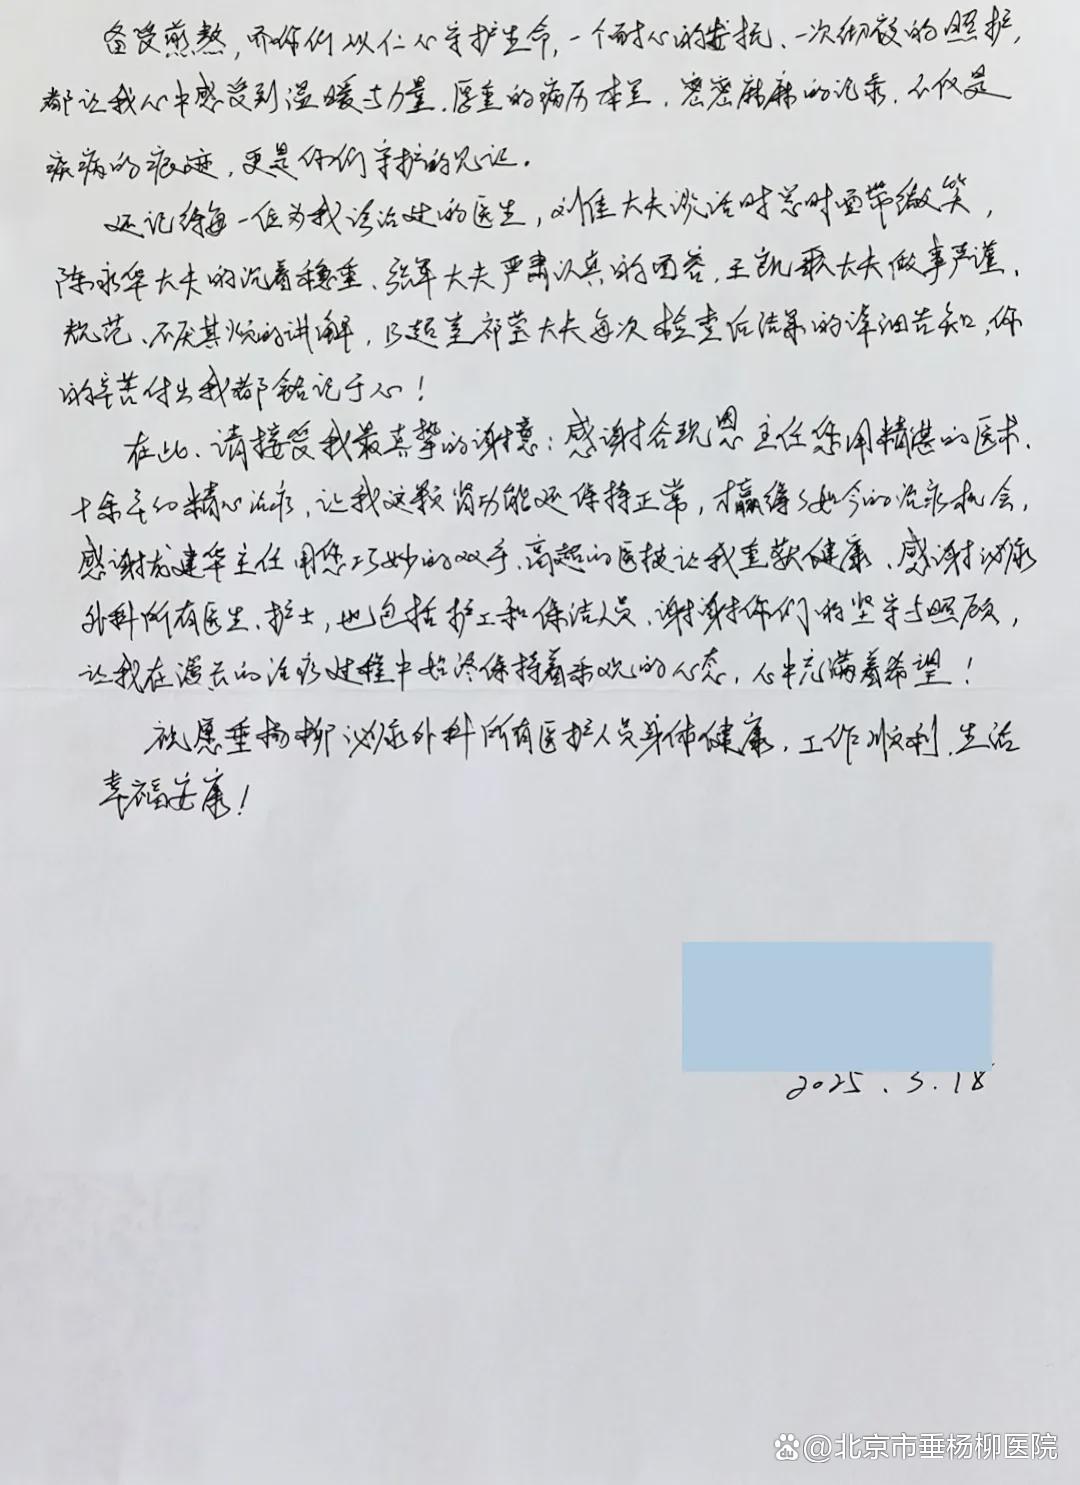 备受煎熬,而你们以仁心守护生命,一个耐心的安抚、一次彻夜的照护,
都让我心中感受到温暖与力量。厚重的病历本里,密密麻麻的记录,不仅是
疾病的痕迹,更是你们守护的见证。
还记得每一位为我诊治过的医生,刘佳大夫谈话时总时面带微笑,
陈永华大夫的沉着稳重、张军大夫严肃认真的回答,王凯歌大夫做事严谨、
规范、不厌其烦的讲解,B超室祁莹大夫每次检查后结果的详细告知,你
的辛苦付出我都铭记于心!
在此、请接受我最真挚的谢意:感谢合现恩主任您用精湛的医术、
十余年的精心治疗,让我这颗肾功能还保持正常,才赢得了如今的治疗机会,
感谢龙建华主任用您巧妙的双手、高超的医技让我重获健康、感谢泌尿
外科所有医生、护士,也包括护工和保洁人员、谢谢你们的坚守与照顾,
让我在漫长的治疗过程中始终保持着乐观的心态,心中充满着希望!
祝愿垂杨柳泌尿外科所有医护人员身体健康,工作顺利、生活
幸福安康!
2025.3.18
@北京市垂杨柳医院